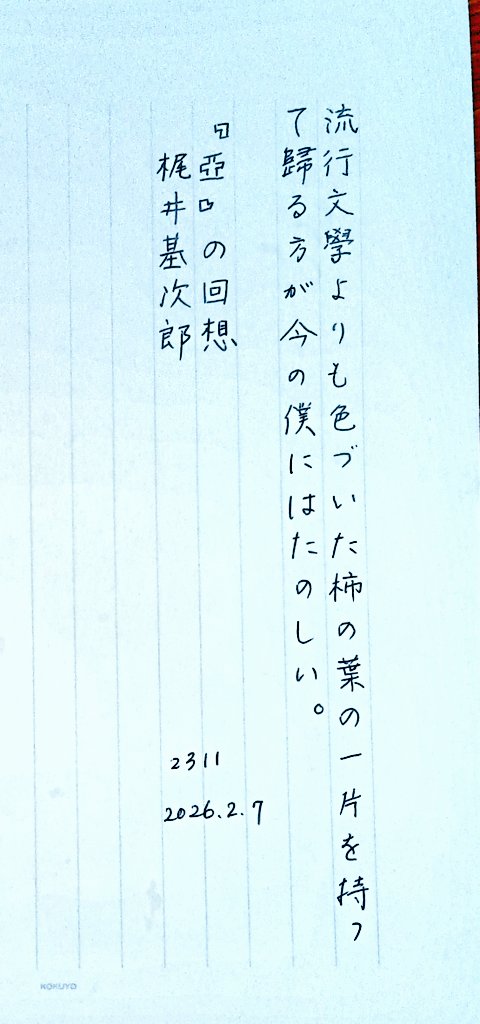 流行文學よりも色づいた柿の葉の一片を持つ
て歸る方が今の僕にはたのしい。
『亞』の回想
梶井基次郎
2311
2026.2.7
KOKUYO